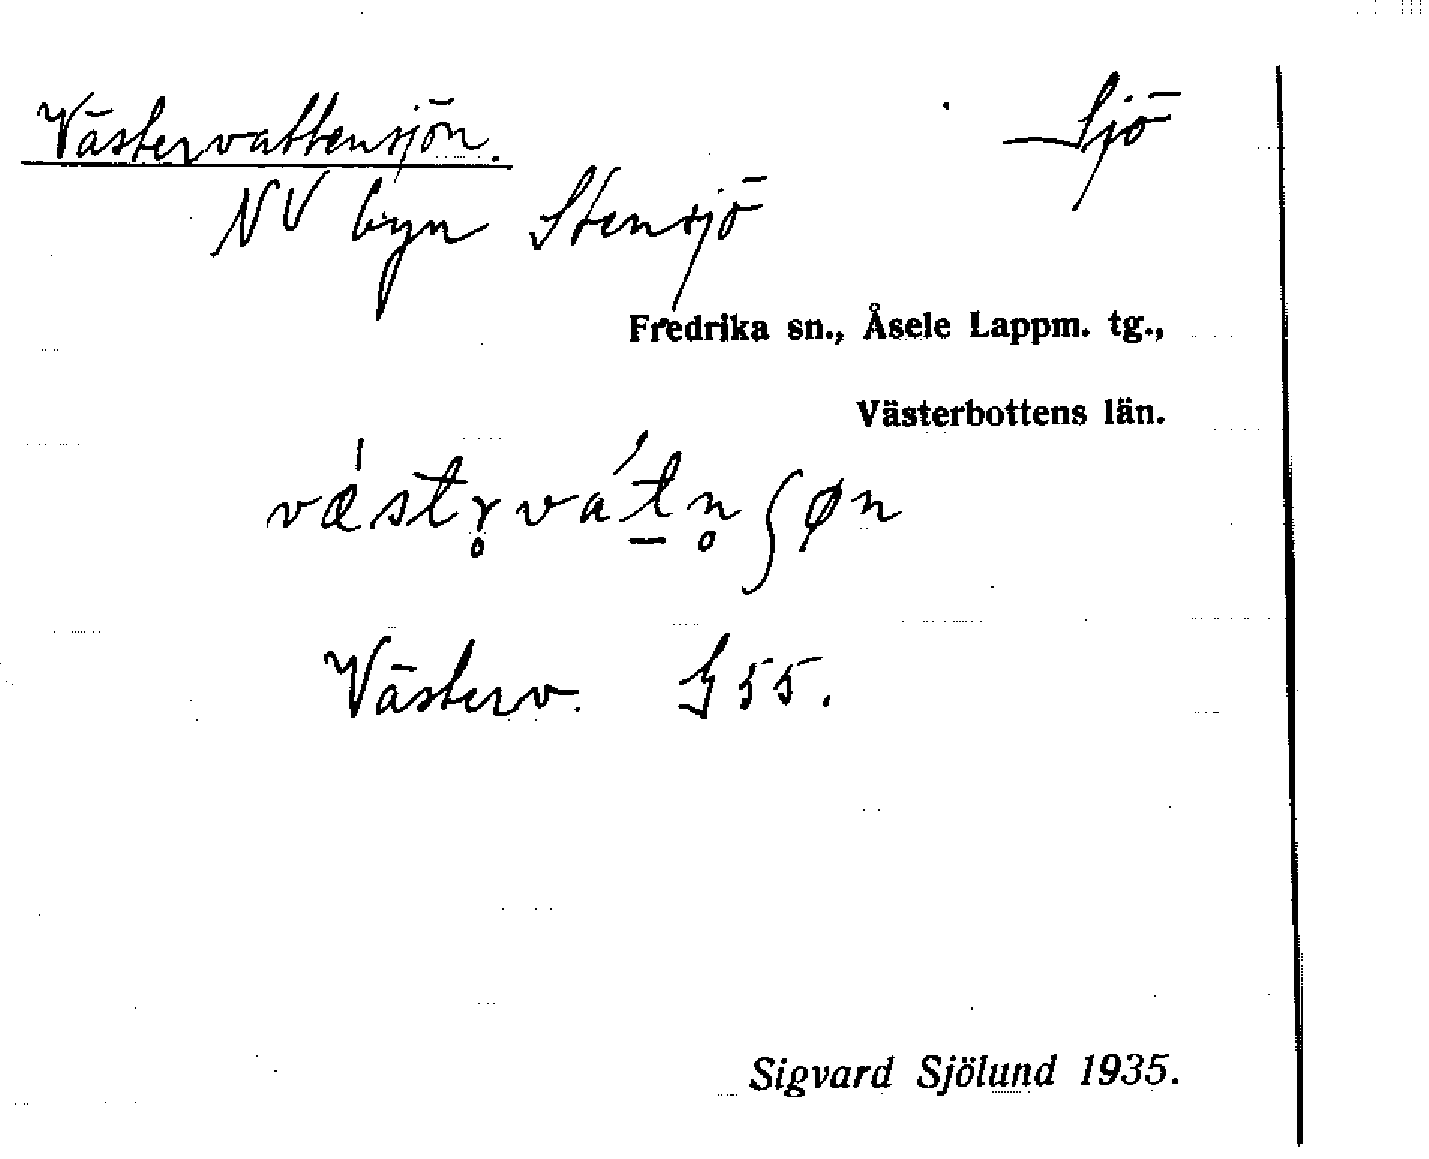 Västervattensjön. Sjö
NV byn Stensjö
Fredrika sn., Åsele Lappm. tg.,
Västerbottens län.
vǽstr̥vát̲n̥ʃøn
Västerv. G 55.
Sigvard Sjölund 1935.